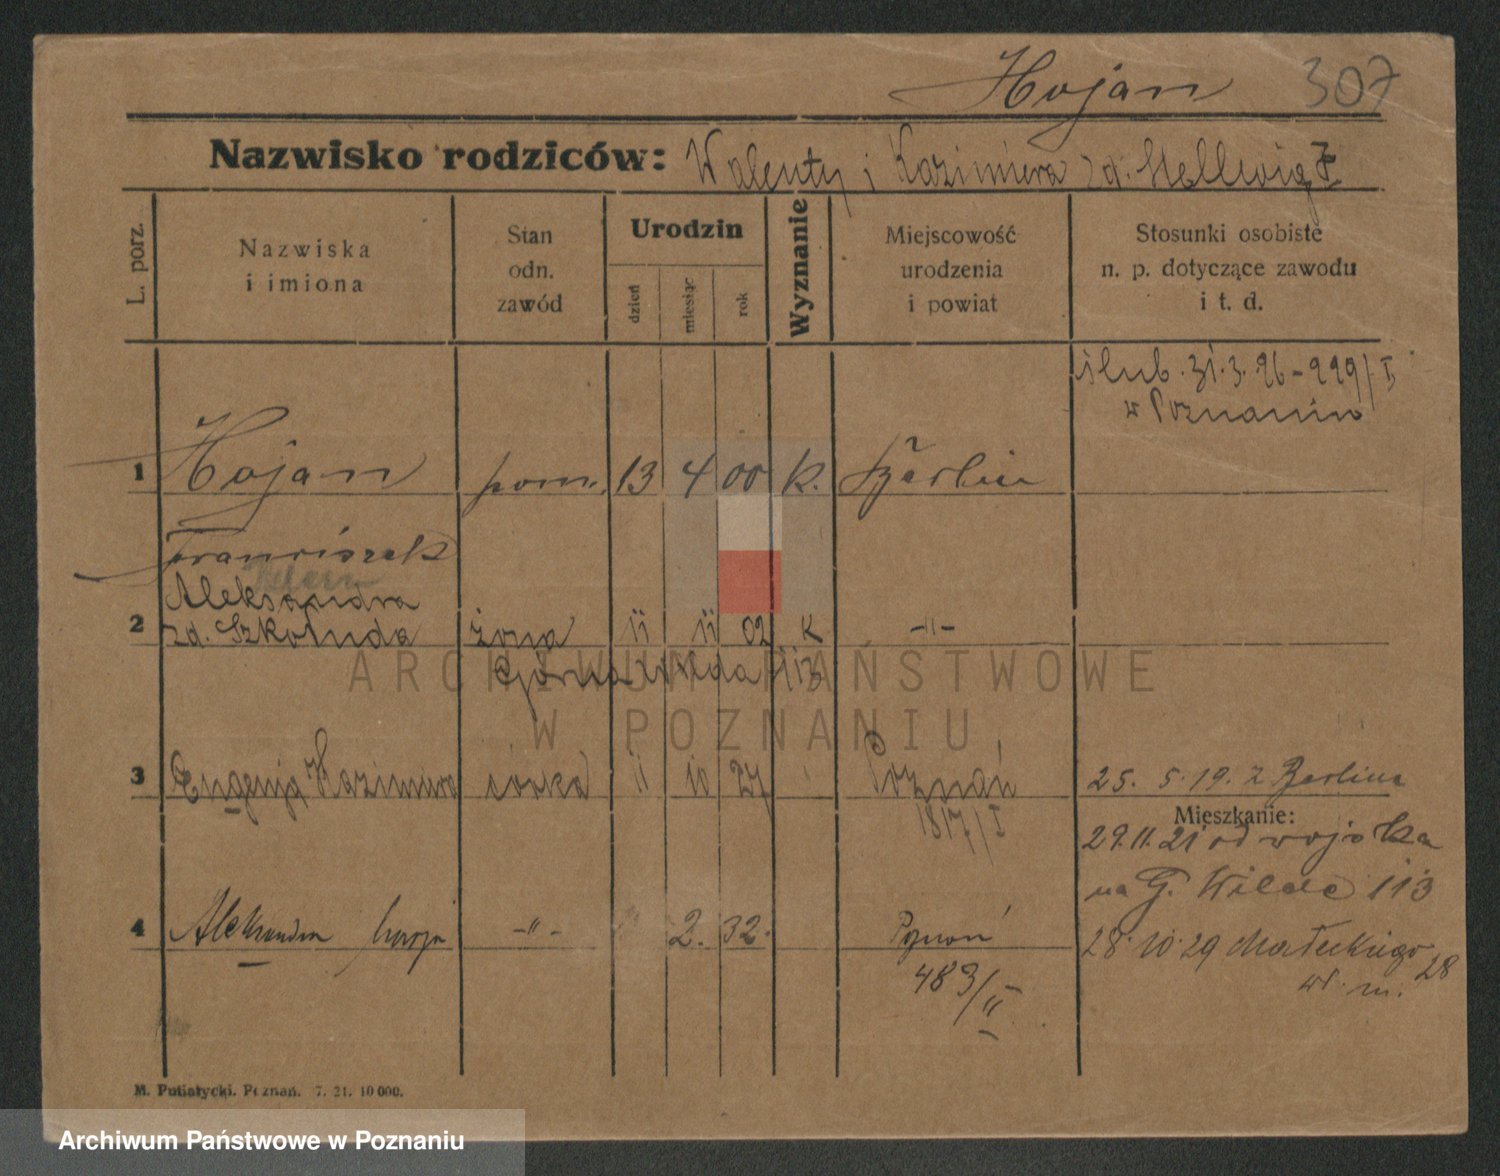 Hojan 307
Nazwisko rodziców: Walenty i Kazimiera zd. Hellwig
L. porz.
Nazwiska
i imiona
Stan
odn.
zawód
Urodzin
dzień
miesiąc
rok
Wyznanie
Miejscowość
urodzenia
i powiat
Stosunki osobiste
n. p. dotyczące zawodu
i t. d.
ślub. 31.3.26-229/I
w Poznaniu
1 Hojan pom. 13 4 00 K. Berlin
Franciszek
Aleksandra
2 zd. Szkołuda żona 11 11 02 K -"-
Górna Wilda 113
3 Eugenja Kazimiera córka 11 10 27 Poznań
1817/I
25. 5. 19. z Berlina
Mieszkanie:
29.11.21 od wojska
na G. Wilde 113
4 Aleksandra -"- 2. 32. Poznań
28.10.29 Małeckiego 28
w. m.
483/II
M. Putiatycki. Poznań. 7. 21. 10 000.
ARCHIWUM PAŃSTWOWE
W POZNANIU
Archiwum Państwowe w Poznaniu